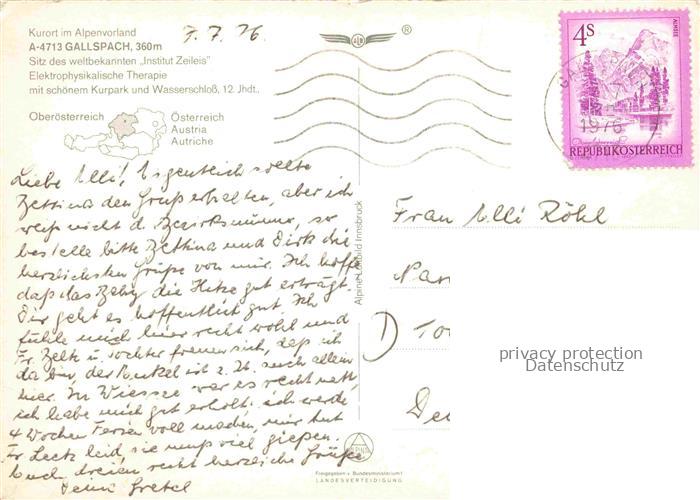 Kurort im Alpenvorland
A-4713 GALLSPACH, 360m
Sitz des weltbekannten „Institut Zeileis"
Elektrophysikalische Therapie
mit schönem Kurpark und Wasserschloß, 12. Jhdt.,
Oberösterreich
Österreich
Austria
Autriche
7.7.76.
®
4S
ALMSEE
1976
REPUBLIK ÖSTERREICH
Liebe Ulli! Eigentlich sollte
Bettina den Gruß erhalten, aber ich
weiß nicht d. Bezirksnummer, so
bestelle bitte Bettina und Dirk die
herzlichsten Grüße von mir. Ich hoffe
daß das Baby die Hitze gut erträgt.
Dir geht es hoffentlich gut. Ich
fühle mich hier recht wohl und
Fr. u. Tochter freuen sich, daß ich
da bin, der Onkel ist z. Zt. auch allein
hier. In Wiessee war es recht nett,
ich habe mich gut erholt. Ich werde
4 Wochen Ferien voll machen, nur tut
Fr. leid, sie muß viel gießen.
Euch dreien recht herzliche Grüße
Deine Gretel
Alpine Luftbild Innsbruck
Frau Ulli Röhl
privacy protection
Datenschutz
Freigegeben v. Bundesministerium f.
LANDESVERTEIDIGUNG